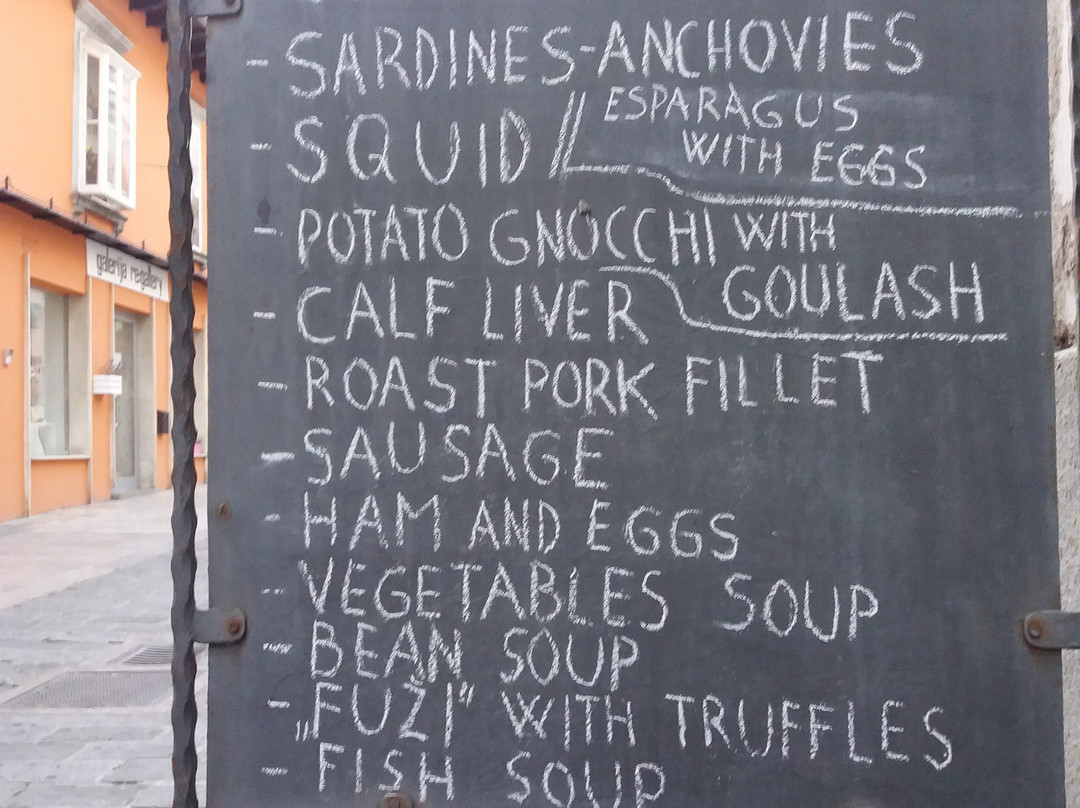 - SARDINES-ANCHOVIES
- SQUID // ESPARAGUS
WITH EGGS
- POTATO GNOCCHI WITH
GOULASH
- CALF LIVER
- ROAST PORK FILLET
- SAUSAGE
- HAM AND EGGS
- VEGETABLES SOUP
- BEAN SOUP
- „FUŽI” WITH TRUFFLES
- FISH SOUP
galerija regallery